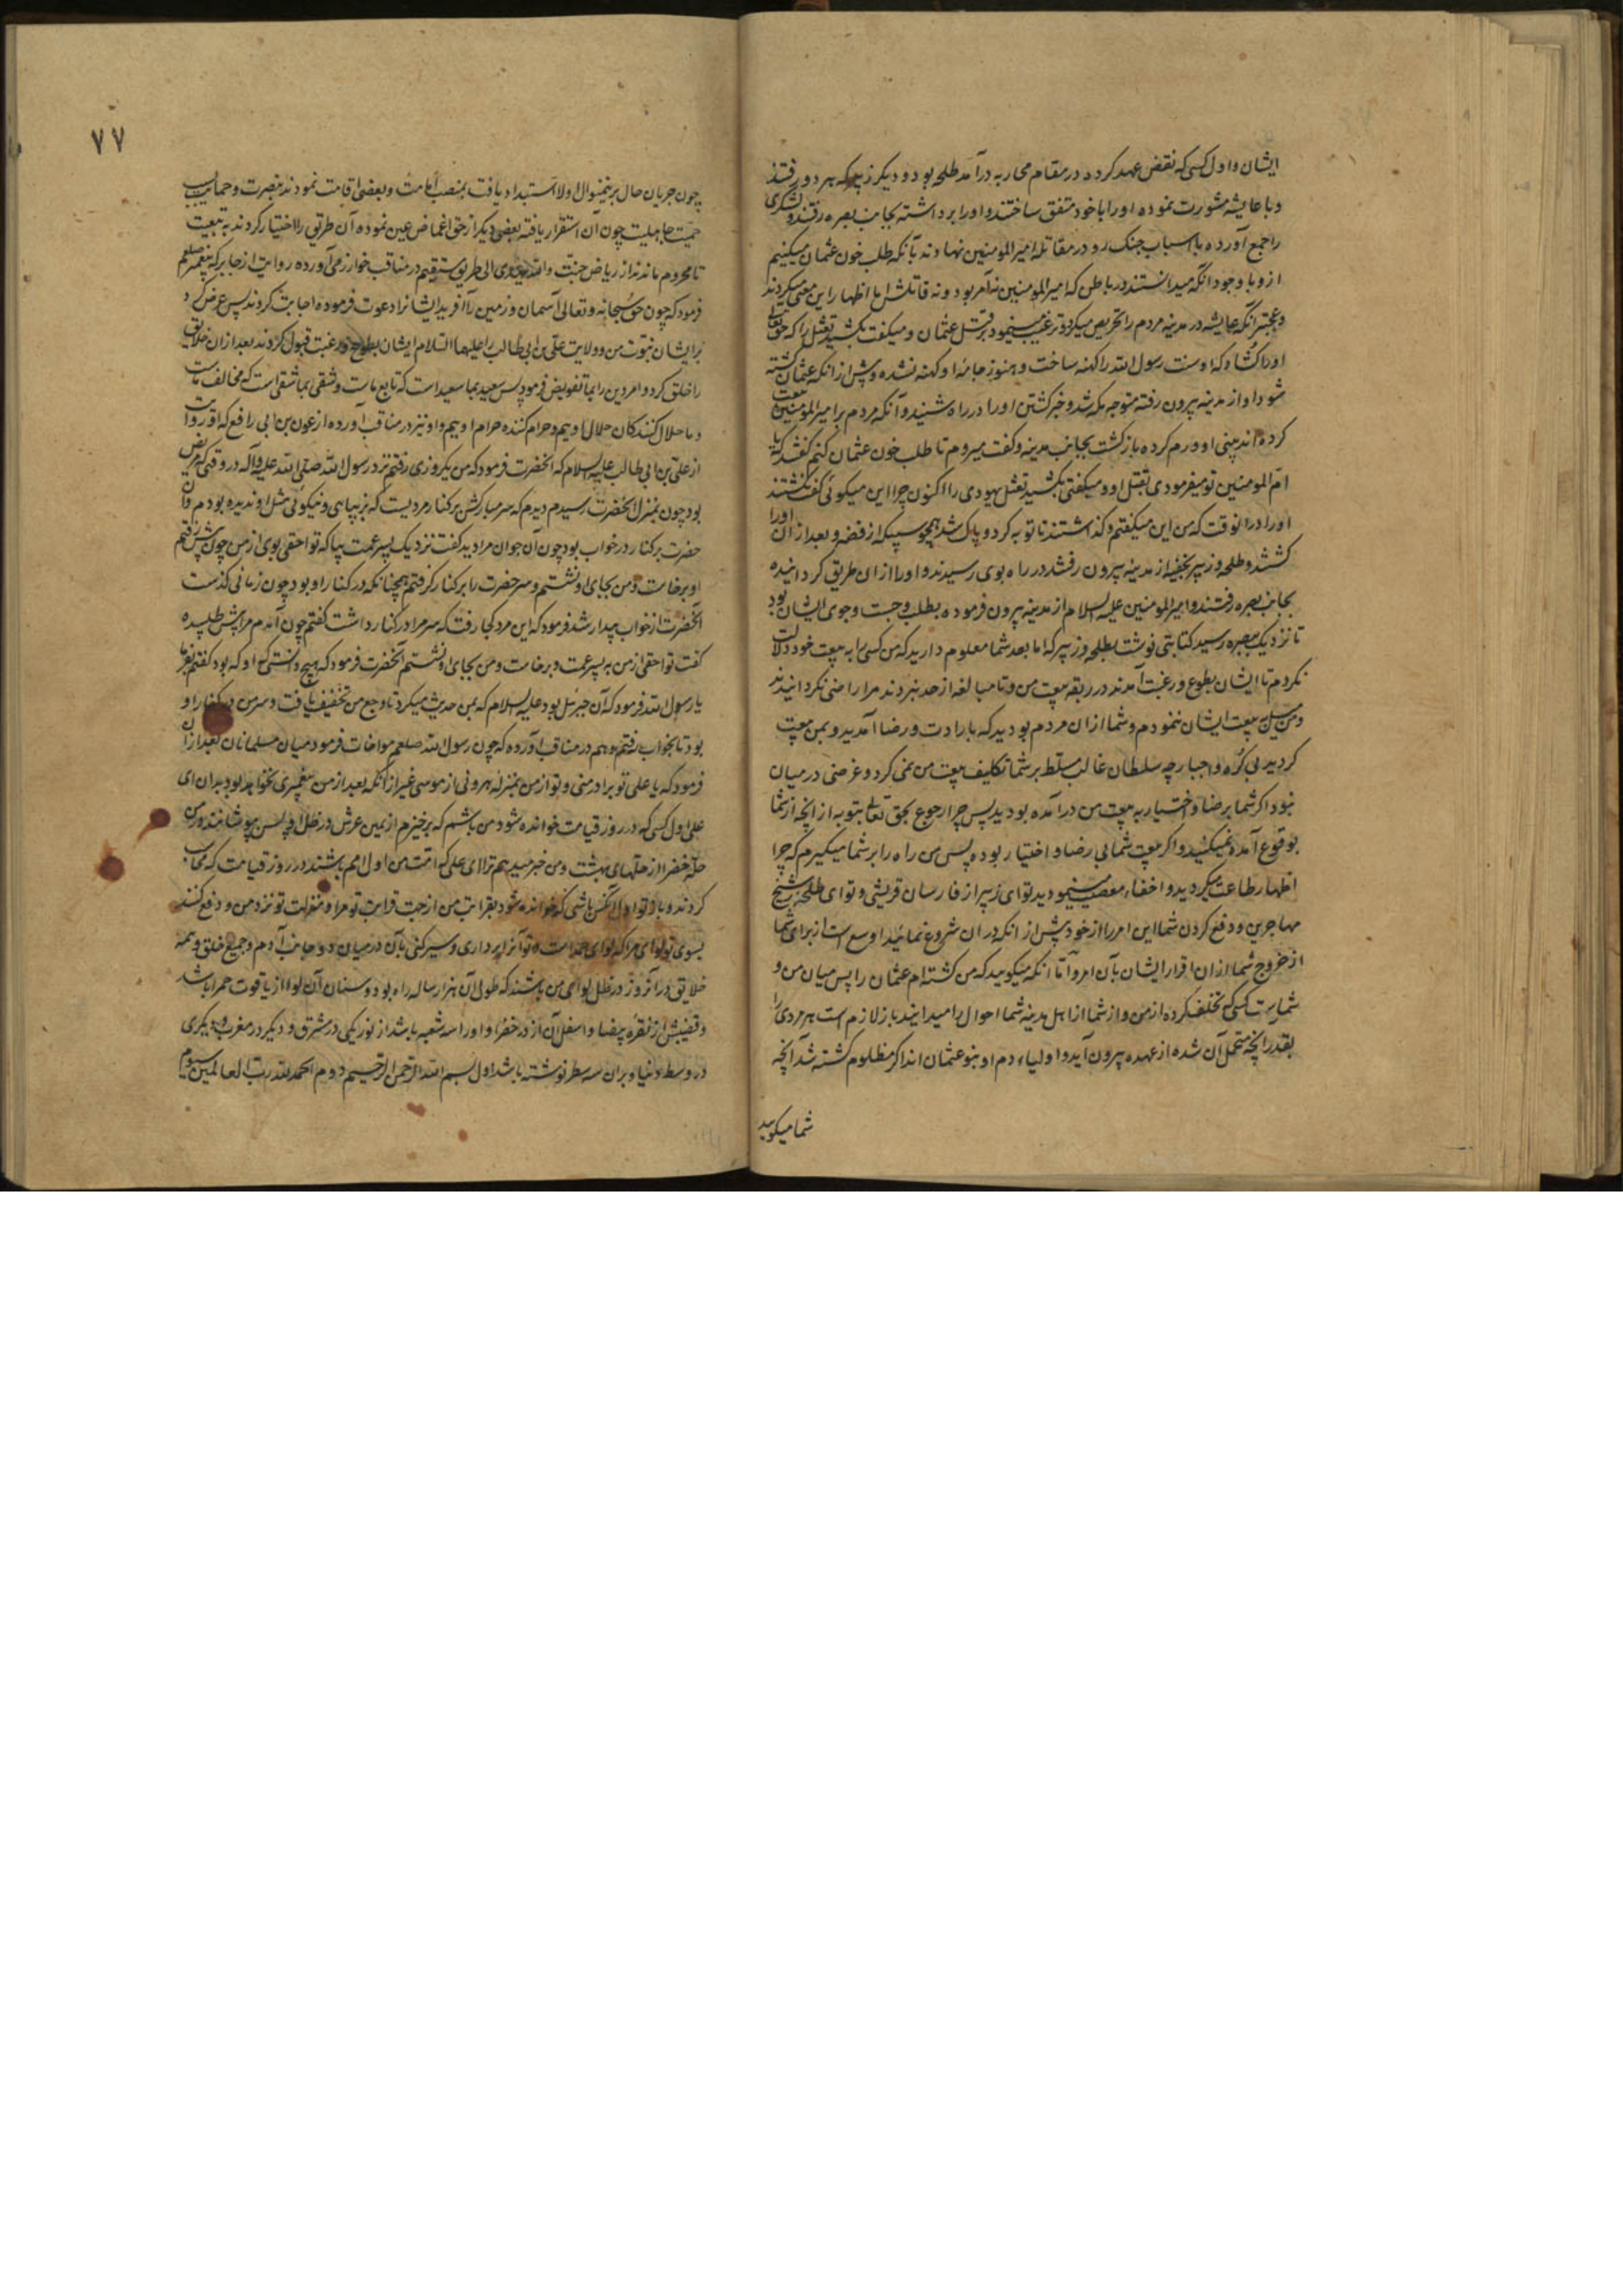 ایشان و اول کسی که نقض عهد کرده در مقام محاربه درآمد طلحه بود و دیگر زبیر که هر دو رفتند
و با عایشه مشورت نموده او را با خود متفق ساختند و او را برداشته بجانب بصره رفتند و لشکری
را جمع آورده با اسباب جنک رو در مقاتله امیرالمومنین نهادند بآنکه طلب خون عثمان میکنیم
ازو با وجود انکه میدانستند در باطن که امیرالمومنین نه آمر بود و نه قاتلش اما اظهار این معنی میکردند
و عجبتر انکه عایشه در مدینه مردم را تحریص میکرد و ترغیب مینمود بر قتل عثمان و میکفت بکشید نعثل را که حق تعالی
او را کشاد که او سنت رسول الله را کهنه ساخت و هنوز جامه او کهنه نشده و پیش از انکه عثمان کشته
شود او از مدینه بیرون رفته متوجه مکه شد و خبر کشتن او را در راه شنید و آنکه مردم بر امیرالمومنین بیعت
کرده اند بینی او ورم کرده بازکشت بجانب مدینه و کفت میروم تا طلب خون عثمان کنم کفتند که یا
ام المومنین تو میفرمودی بقتل او و میکفتی بکشید نعثل یهودی را اکنون چرا این میکوئی کفت نکشتند
او را در انوقت که من این میکفتم و کذاشتند تا توبه کرد و پاک شد همچو سبیکه از فضه و بعد از آن او را
کشتند و طلحه و زبیر بخفیه از مدینه بیرون رفتند در راه بوی رسیدند و او را از ان طریق کردانیده
بجانب بصره رفتند و امیرالمومنین علیه السلام از مدینه بیرون فرموده بطلب و جست و جوی ایشان بود
تا نزدیک ببصره رسید کتابتی نوشت بطلحه و زبیر که اما بعد شما معلوم دارید که من کسی را به بیعت خود دلالت
نکردم تا ایشان بطوع و رغبت آمدند در ربقه بیعت من و تا مبالغه از حد نبردند مرا راضی نکردانیدند
و من میل به بیعت ایشان ننمودم و شما از ان مردم بودید که بارادت و رضا آمدید و بمن بیعت
کردید بی کره و اجبار چه سلطان غالب مسلط بر شما تکلیف بیعت من نمی کرد و غرضی در میان
نبود اکر شما برضا و اختیار به بیعت من درآمده بودید پس چرا رجوع بحق تعالی بتوبه از انچه از شما
بوقوع آمده نمیکنید و اکر بیعت شما بی رضا و اختیار بوده پس من راه را بر شما میکیرم که چرا
اظهار طاعت میکردید و اخفاء معصیت مینمودید تو ای زبیر از فارسان قریشی و تو ای طلحه شیخ
مهاجرین و دفع کردن شما این امر را از خود پیش از انکه در ان شروع نمائید اوسع است از برای شما
از خروج شما از ان اقرار ایشان بآن امر و اما انکه میکویید که من کشته ام عثمان را پس میان من و
شماست کسی که تخلف کرده از من و از شما از اهل مدینه شما احوال را میدانید باز لازم است هر مردی را
بقدر انچه متحمل آن شده از عهده بیرون آید و اولیاء دم او بنو عثمان اند اکر مظلوم کشته شد آنچه
شما میکویید
٧٧
چون جریان حال بر نینمنوال اولا استبداد یافت بمنصب امامت و بعضی اقامت نمودند بنصرت و حمایت بسبب
حمیت جاهلیت چون آن استقرار یافته بعضی دیکر از حق اغماض عین نموده آن طریق را اختیار کردند به تبعیت
تا محروم ماندند از ریاض جنت والله یهدی الی طریق مستقیم در مناقب خوارزمی آورده روایت از جابر که پیغمبر صلعم
فرمود که چون حق سبحانه و تعالی آسمان و زمین را آفرید ایشانرا دعوت فرموده اجابت کردند پس عرض کرد
بر ایشان نبوت من و ولایت علی بن ابی طالب را علیهما السلام ایشان بطوع و رغبت قبول کردند بعد از ان خلایق
را خلق کرد و امر دین را بما تفویض فرمود پس سعید بما سعید است که تابع ماست و شقی بما شقی است که مخالف ماست
و ما حلال کنندکان حلال اوییم و حرام کننده حرام اوییم و او نیز در مناقب آورده از عون بن ابی رافع که او روایت
از علی بن ابی طالب علیه السلام که آنحضرت فرمود که من یکروزی رفتم نزد رسول الله صلی الله علیه و آله در وقتی که مریض
بود چون بمنزل آنحضرت رسیدم دیدم که سر مبارکش بر کنار مردیست که بزیبایی و نیکوئی مثل او ندیده بودم و آن
حضرت بر کنار در خواب بود چون آن جوان مرا دید کفت نزدیک پسر عمت بیا که تو احقی بوی از من چون پیش رفتم
او برخاست و من بجای او نشستم و سر حضرت را بر کنار کرفتم همچنانکه در کنار او بود چون زمانی کذشت
آنحضرت از خواب بیدار شد فرمود که این مرد کجا رفت که سر مرا در کنار داشت کفتم چون آمدم مرا پیش طلبیده
کفت تو احقی از من به پسر عمت و برخاست و من بجای او نشستم آنحضرت فرمود که هیچ دانستی که او که بود کفتم نه
یا رسول الله فرمود که آن جبرئیل بود علیه السلام که بمن حدیث میکرد تا وجع من تخفیف یافت و سر من در کنار او
بود تا بخواب رفتم و هم در مناقب آورده که چون رسول الله صلعم مواخات فرمود میان مسلمانان بعد از ان
فرمود که یا علی تو برادر منی و تو از من بمنزله هرونی از موسی غیر از انکه بعد از من پیغمبری نخواهد بود بدان ای
علی اول کسی که در روز قیامت خوانده شود من باشم که برخیزم از یمین عرش در ظل او پس بپوشانند در من
حله خضرا از حلهای بهشت و من خبر میدهم ترا ای علی که امت من اول امم باشند در روز قیامت که محاسب
کردند و بار تو اول آنکس باشی که خوانده شود بقرابت من از جهت قرابت تو مرا و منزلت تو نزد من و دفع کنند
بسوی تو لوای مرا که لوای حمد است و تو آنرا برداری و سیر کنی بآن در میان دو جانب آدم و جمیع خلق و همه
خلایق در آنروز در ظل لوای من باشند که طول آن هزار ساله راه بود و سنان آن لوا از یاقوت حمرا باشد
و قضیبش از نقره بیضا و اسفل آن از در خضرا و او را سه شعبه باشد از نور یکی در مشرق و دیکر در مغرب و دیکری
در وسط دنیا و بران سه سطر نوشته باشد اول بسم الله الرحمن الرحیم دوم الحمد لله رب العالمین سیوم